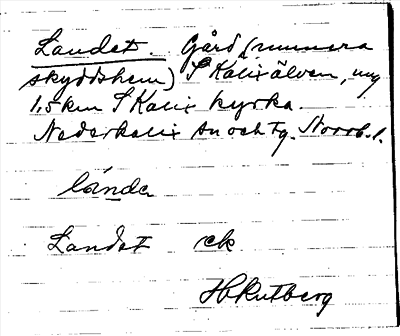 Landet. Gård (numera
skyddshem) S Kalixälven, ung
1,5 km S Kalix kyrka.
Nederkalix sn och tg. Norrb. l.
lánda
Landet rck
H Rutberg